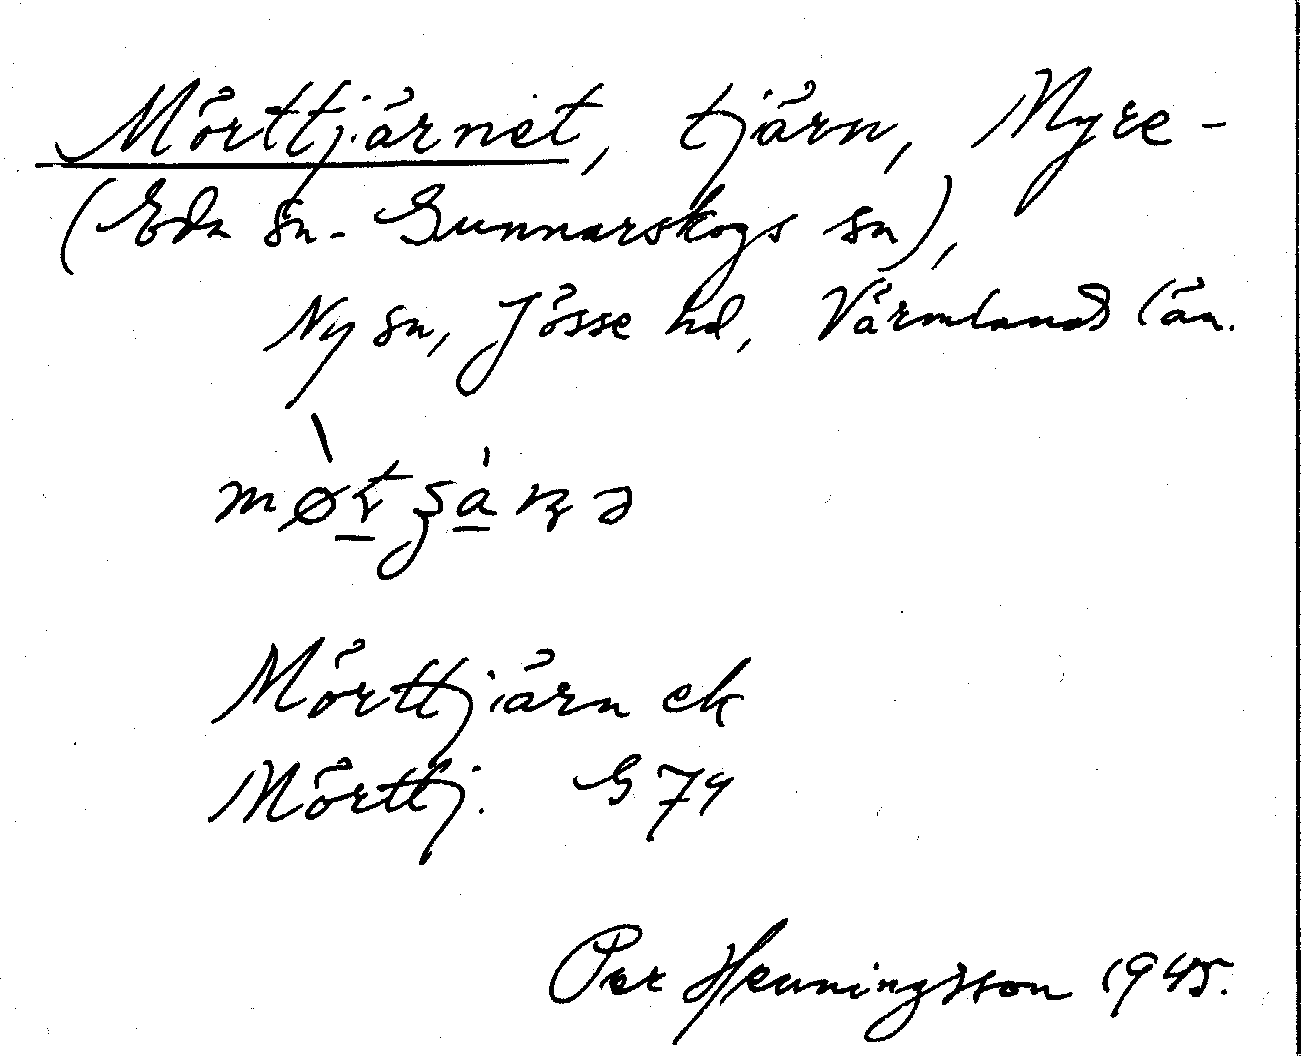 Mörttjärnet, tjärn, Myre-
(Eda sn - Gunnarskogs sn),
Ny sn, Jösse hd, Värmlands län.
Mörttjärn ek
Mörttj. G 74
Per Henningsson 1945.